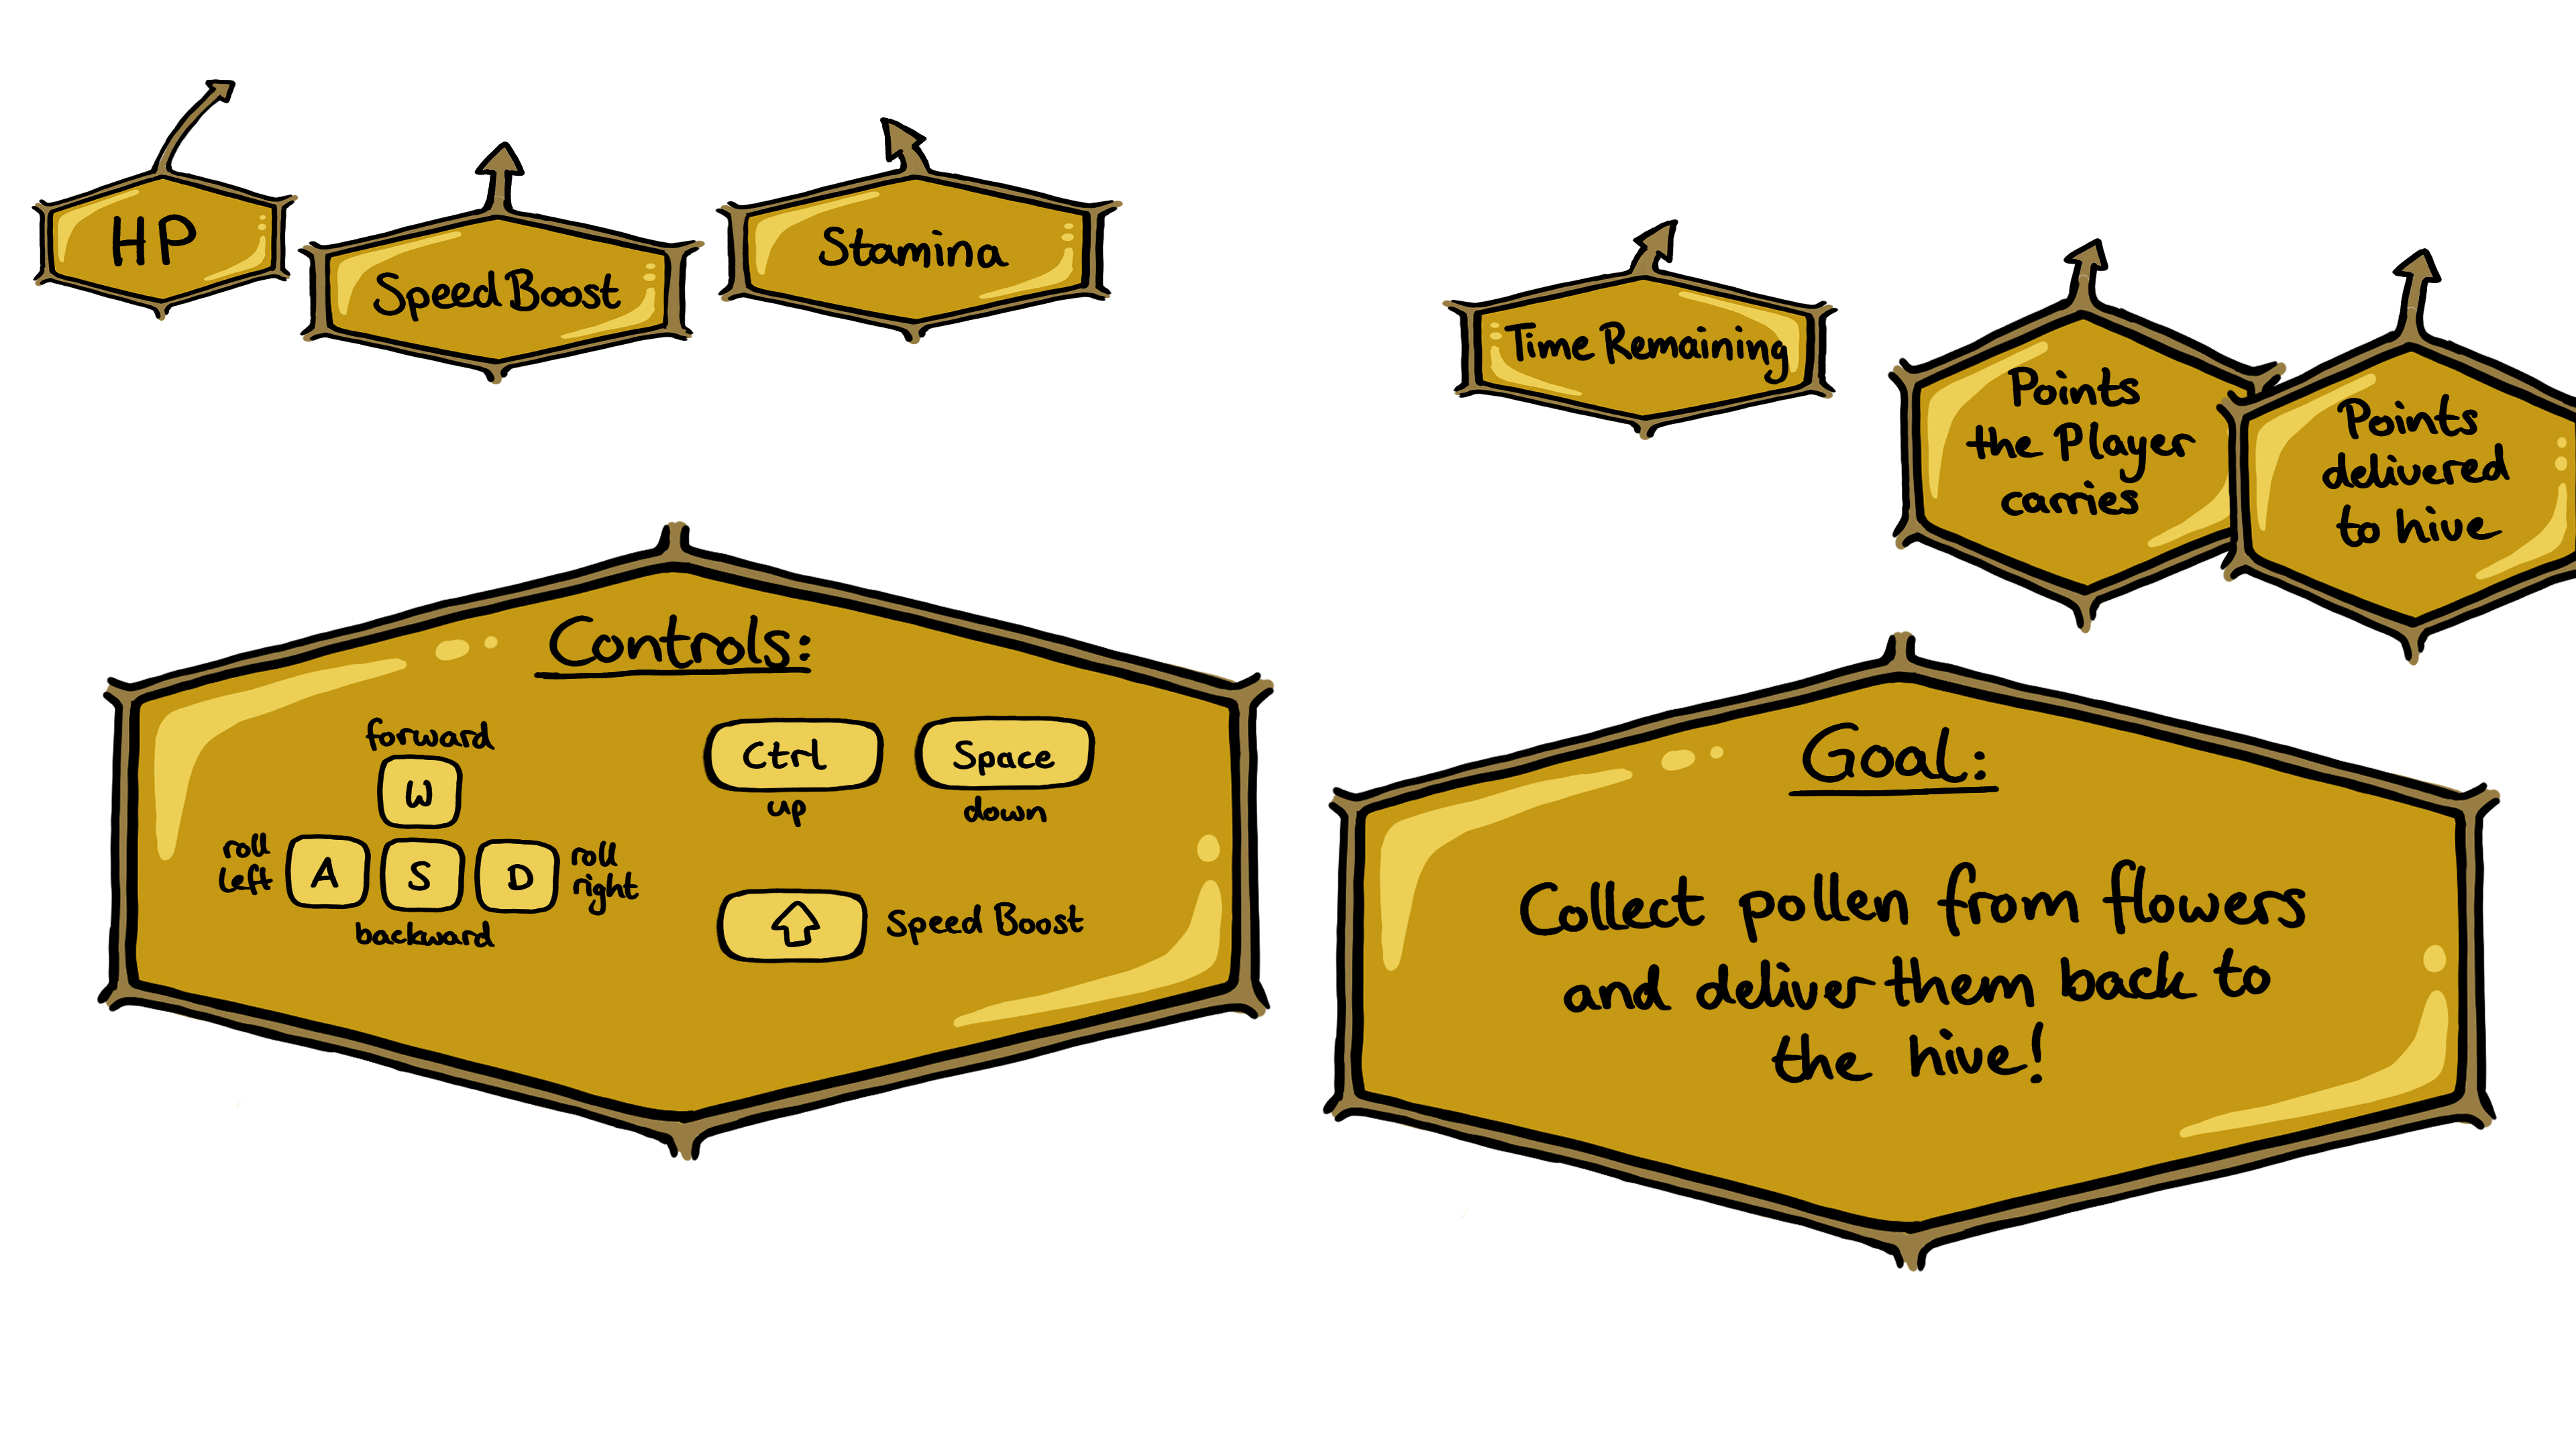 HP
Speed Boost
Stamina
Time Remaining
Points
the Player
carries
Points
delivered
to hive
Controls:
forward
W
roll
left
A
S
D
roll
right
backward
Ctrl
up
Space
down
Speed Boost
Goal:
Collect pollen from flowers
and deliver them back to
the hive!